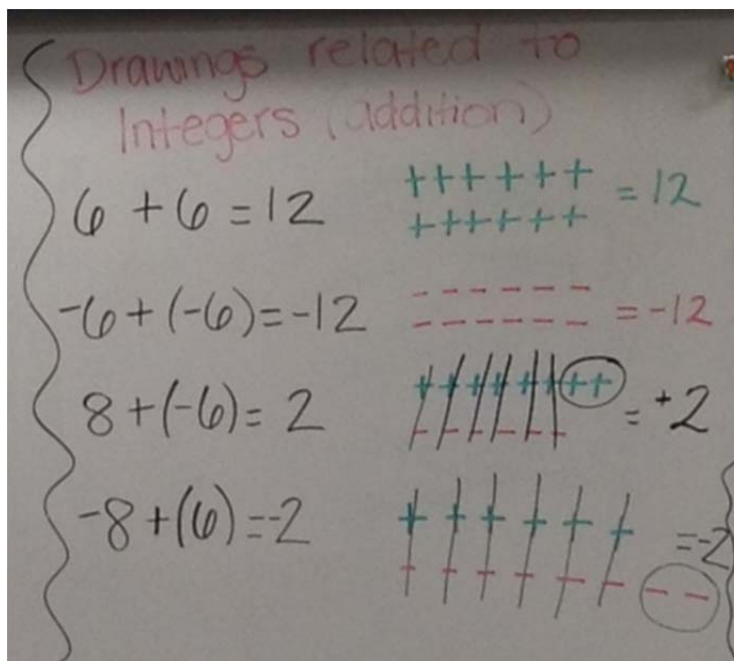 Drawings related to
Integers (addition)
6 + 6 = 12
++++++ = 12
++++++
-6 + (-6) = -12
- - - - - -
- - - - - - = -12
8 + (-6) = 2
++++++++ = +2
- - - - - -
-8 + (6) = -2
++++++ = -2
- - - - - - - -